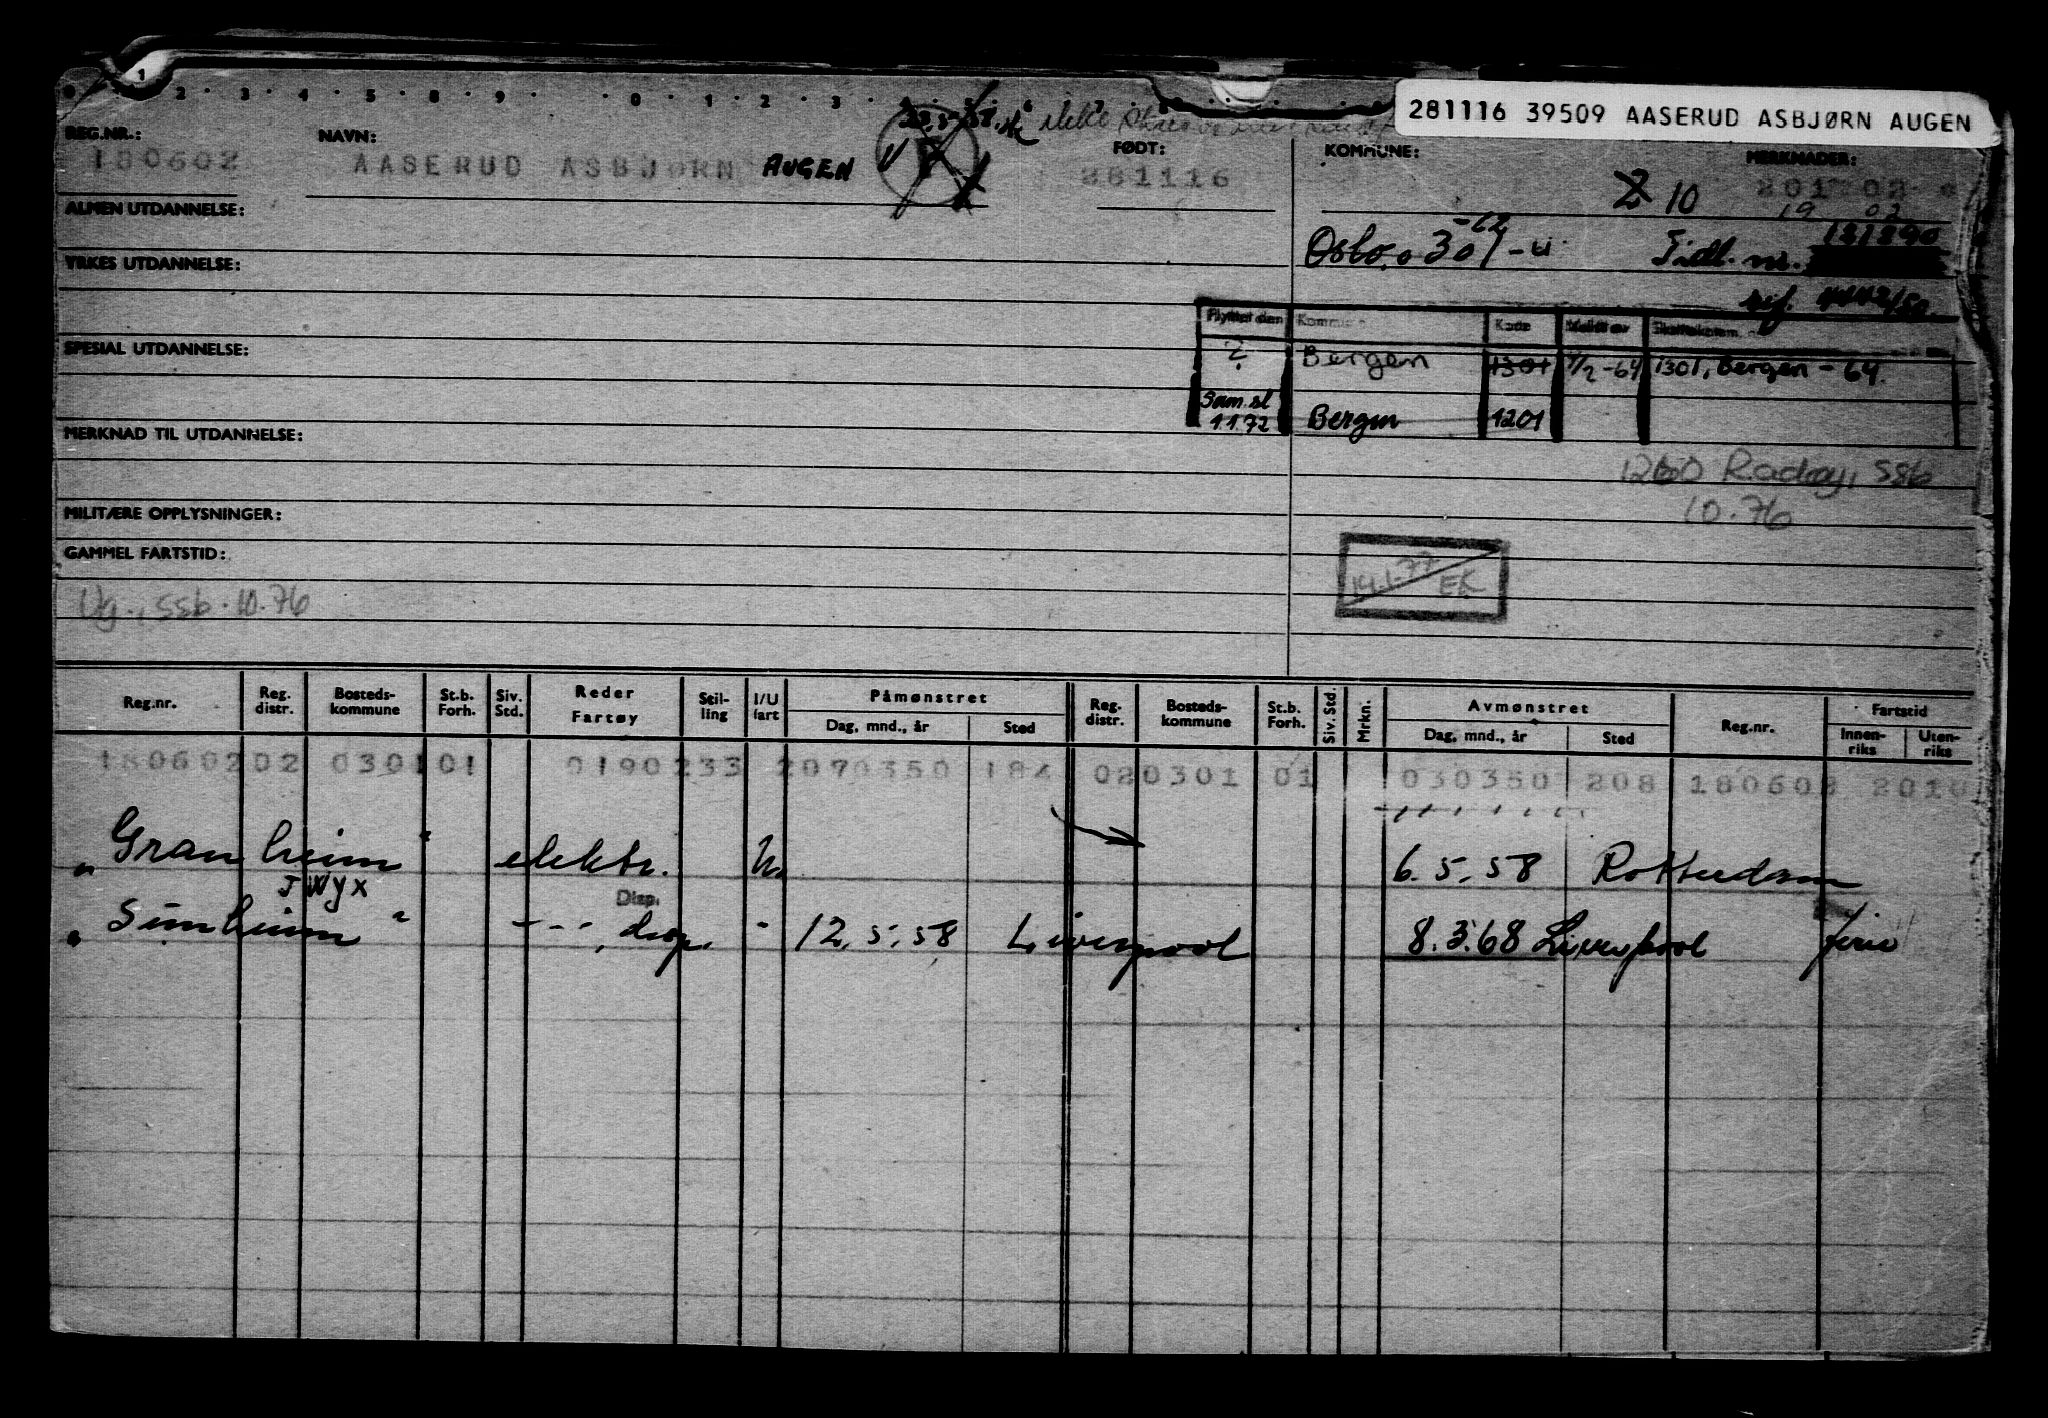 281116 39509 AASERUD ASBJØRN AUGEN
1 2 3 4 5 8 9 0 1 2 3
REG.NR.: NAVN: FØDT: KOMMUNE: MERKNADER:
180602 AASERUD ASBJØRN AUGEN 281116 2 10 201 02
19 02
ALMEN UTDANNELSE:
-62
Oslo, 0301 Tidl. nr. 131890
YRKES UTDANNELSE:
Flyttet den Kommune Kode Meldt av
SPESIAL UTDANNELSE:
? Bergen 1301 1/2-64 1301, Bergen - 64.
Sam.sl
1172 Bergen 1201
MERKNAD TIL UTDANNELSE:
1260 Radøy, ssb
10.76
MILITÆRE OPPLYSNINGER:
GAMMEL FARTSTID:
14.1.77 EK
Ug., ssb. 10.76
Reg.nr. Reg. distr. Bosteds-kommune St.b. Forh. Siv. Std. Reder Fartøy Stil-ling I/U fart Påmønstret Dag, mnd., år Sted Reg. distr. Bosteds-kommune St.b. Forh. Siv. Std. Mrkn. Avmønstret Dag, mnd., år Sted Reg.nr. Fartstid Innen-riks Uten-riks
180602 02 0301 01 0190233 2 070350 184 02 0301 01 030350 208 180602 2010
"Granheim" elektr. U. 6.5.58 Rotterdam
JWYX
Disp.
"Sunheim" - - -, disp. - 12.5.58 Liverpool 8.3.68 Liverpool ferie